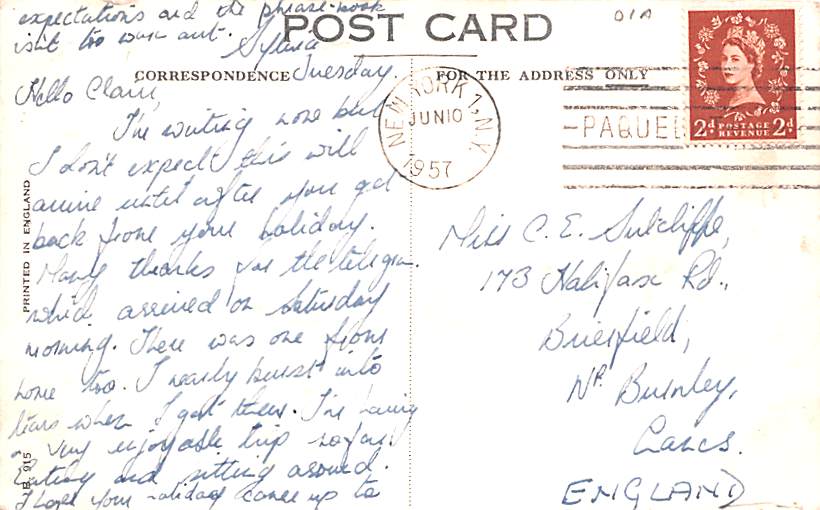 expectations and the phrase-book
isn't too worn out. Sylvia
POST CARD
01A
CORRESPONDENCE
FOR THE ADDRESS ONLY
Tuesday.
Hello Clam,
I'm writing now but
I don't expect this will
arrive until after you get
back from your holiday.
Many thanks for the telegram
which arrived on Saturday
morning. There was one from
home too. I nearly burst into
tears when I got them. I'm having
a very enjoyable trip so far.
Eating and sitting around.
I hope your holiday came up to
PRINTED IN ENGLAND
B. 915
NEW YORK 1, N.Y.
JUN 10
1957
PAQUEBOT
2d POSTAGE REVENUE 2d
Miss C. E. Sutcliffe,
173 Halifax Rd.,
Brierfield,
Nr. Burnley,
Lancs.
ENGLAND